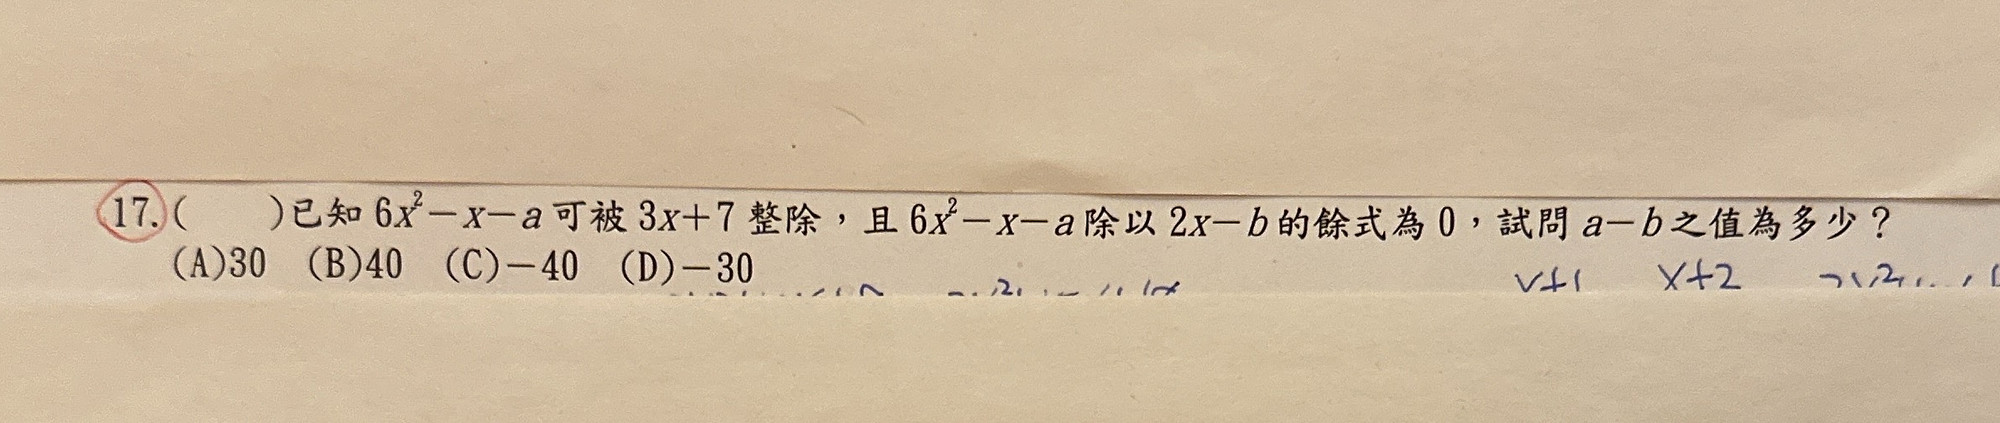 17.(　　)已知 6x²－x－a 可被 3x＋7 整除，且 6x²－x－a 除以 2x－b 的餘式為 0，試問 a－b 之值為多少？
(A)30　(B)40　(C)－40　(D)－30
x+1　x+2